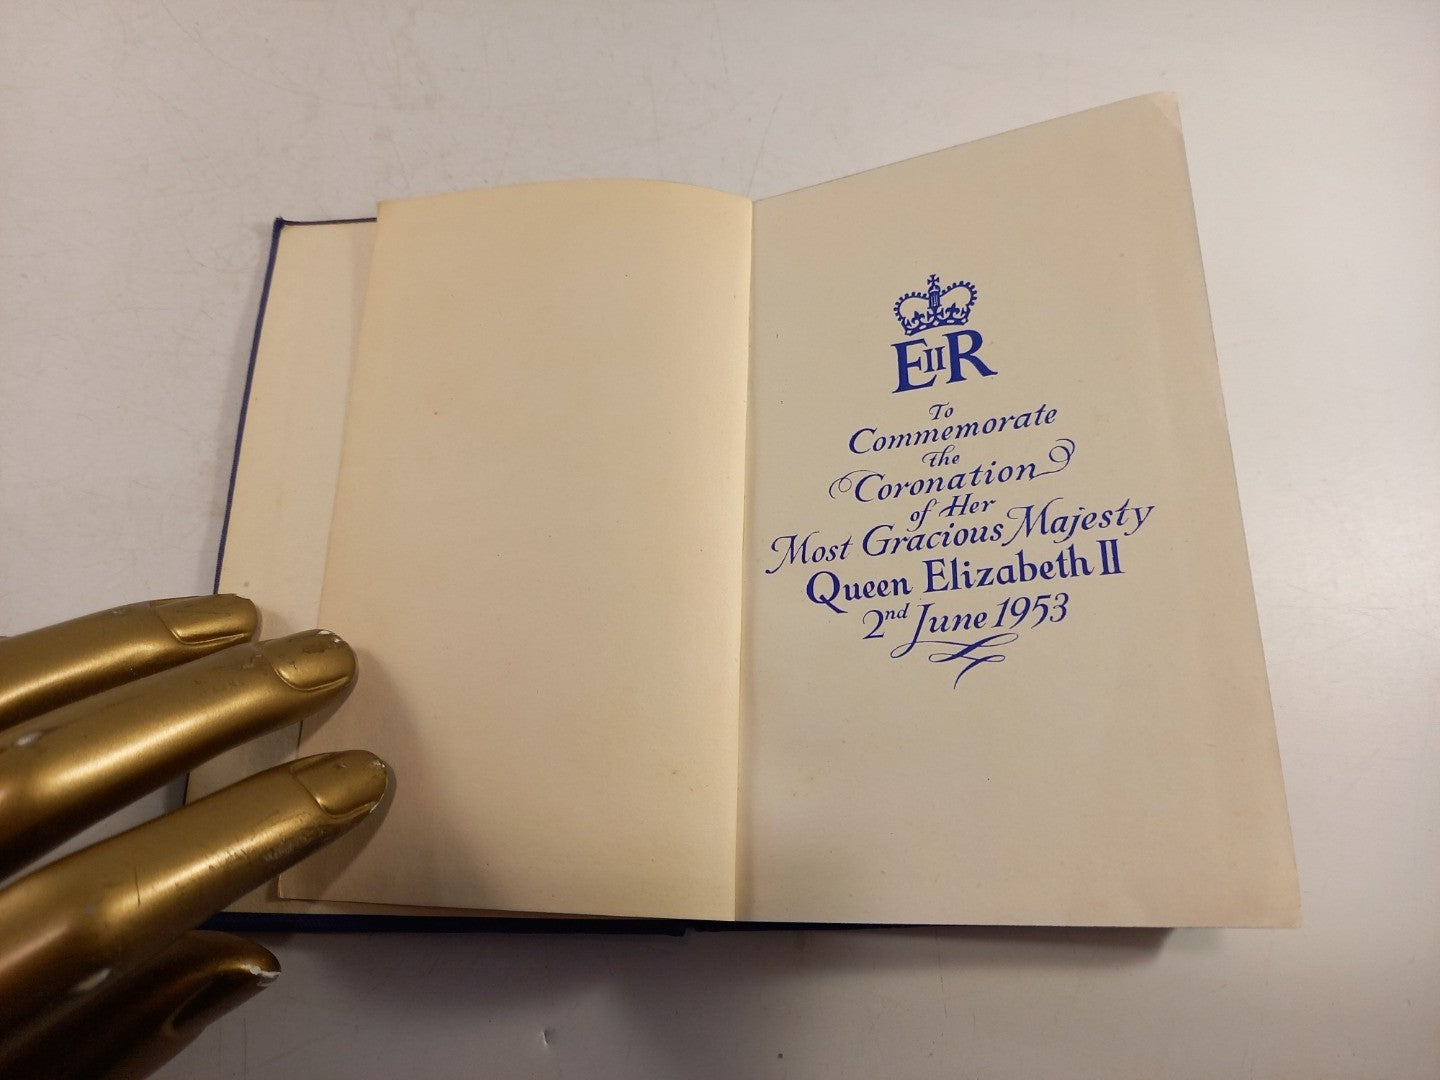 EIIR
To
Commemorate
the
Coronation
of Her
Most Gracious Majesty
Queen Elizabeth II
2nd June 1953